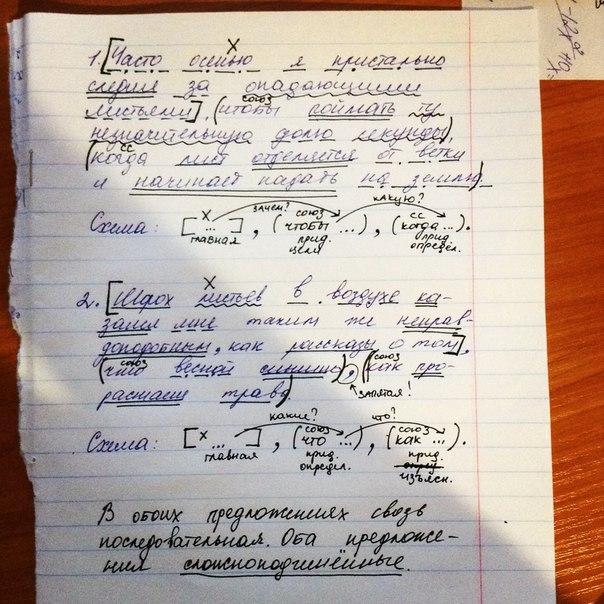 1. [Часто осенью я пристально
следил за опадающими
листьями], (чтобы поймать ту
союз
незначительную долю секунды),
сс
(когда лист отделяется от ветки
и начинает падать на землю).
зачем? какую?
Схема: [х ...], (союз чтобы ...), (сс когда ...).
главная прид. цели прид. определ.
2. [Шорох листьев в воздухе ка-
зался мне таким же неправ-
доподобным, как рассказы о том],
союз союз
(что весной слышно), (как про-
растает трава)
запятая!
какие? что?
Схема: [х ...], (союз что ...), (союз как ...).
главная прид. определ. прид. изъясн.
В обоих предложениях связь
последовательная. Оба предложе-
ния сложноподчинённые.